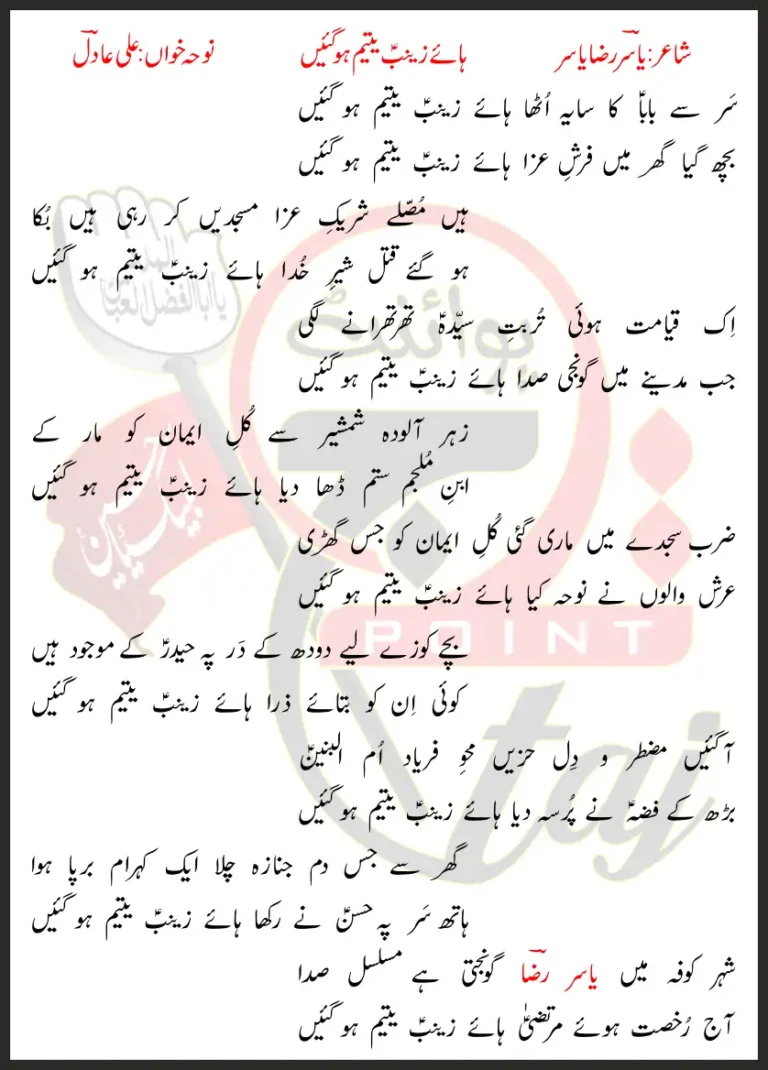 شاعر: یاسر رضا یاسر ہائے زینبؑ یتیم ہو گئیں نوحہ خواں: علی عادل
سَر سے باباؑ کا سایہ اُٹھا ہائے زینبؑ یتیم ہو گئیں
بچھ گیا گھر میں فرشِ عزا ہائے زینبؑ یتیم ہو گئیں
ہیں مُصّلے شریکِ عزا مسجدیں کر رہی ہیں بُکا
ہو گئے قتل شیرِ خُدا ہائے زینبؑ یتیم ہو گئیں
اِک قیامت ہوئی تُربتِ سیّدہؑ تھرتھرانے لگی
جب مدینے میں گونجی صدا ہائے زینبؑ یتیم ہو گئیں
زہر آلودہ شمشیر سے گُلِ ایمان کو مار کے
ابنِ مُلجم ستم ڈھا دیا ہائے زینبؑ یتیم ہو گئیں
ضرب سجدے میں ماری گئی گُلِ ایمان کو جس گھڑی
عرش والوں نے نوحہ کیا ہائے زینبؑ یتیم ہو گئیں
بچے کوزے لیے دودھ کے دَر پہ حیدرؑ کے موجود ہیں
کوئی اِن کو بتائے ذرا ہائے زینبؑ یتیم ہو گئیں
آ گئیں مضطر و دِل حزیں محوِ فریاد اُم البنینؑ
بڑھ کے فضہؑ نے پُرسہ دیا ہائے زینبؑ یتیم ہو گئیں
گھر سے جس دم جنازہ چلا ایک کہرام برپا ہوا
ہاتھ سَر پہ حسنؑ نے رکھا ہائے زینبؑ یتیم ہو گئیں
شہر کوفہ میں یاسر رضا گونجتی ہے مسلسل صدا
آج رُخصت ہوئے مرتضیٰؑ ہائے زینبؑ یتیم ہو گئیں
پوائنٹ
POINT
taj
لبیک یا حسین
یا ابا الفضل العباس